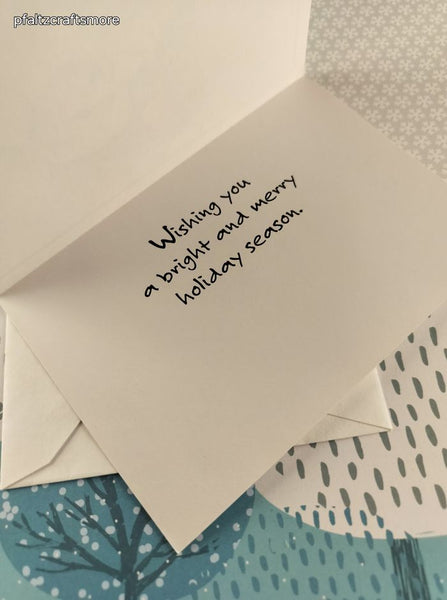 pfaltzcraftsmore
Wishing you
a bright and merry
holiday season.